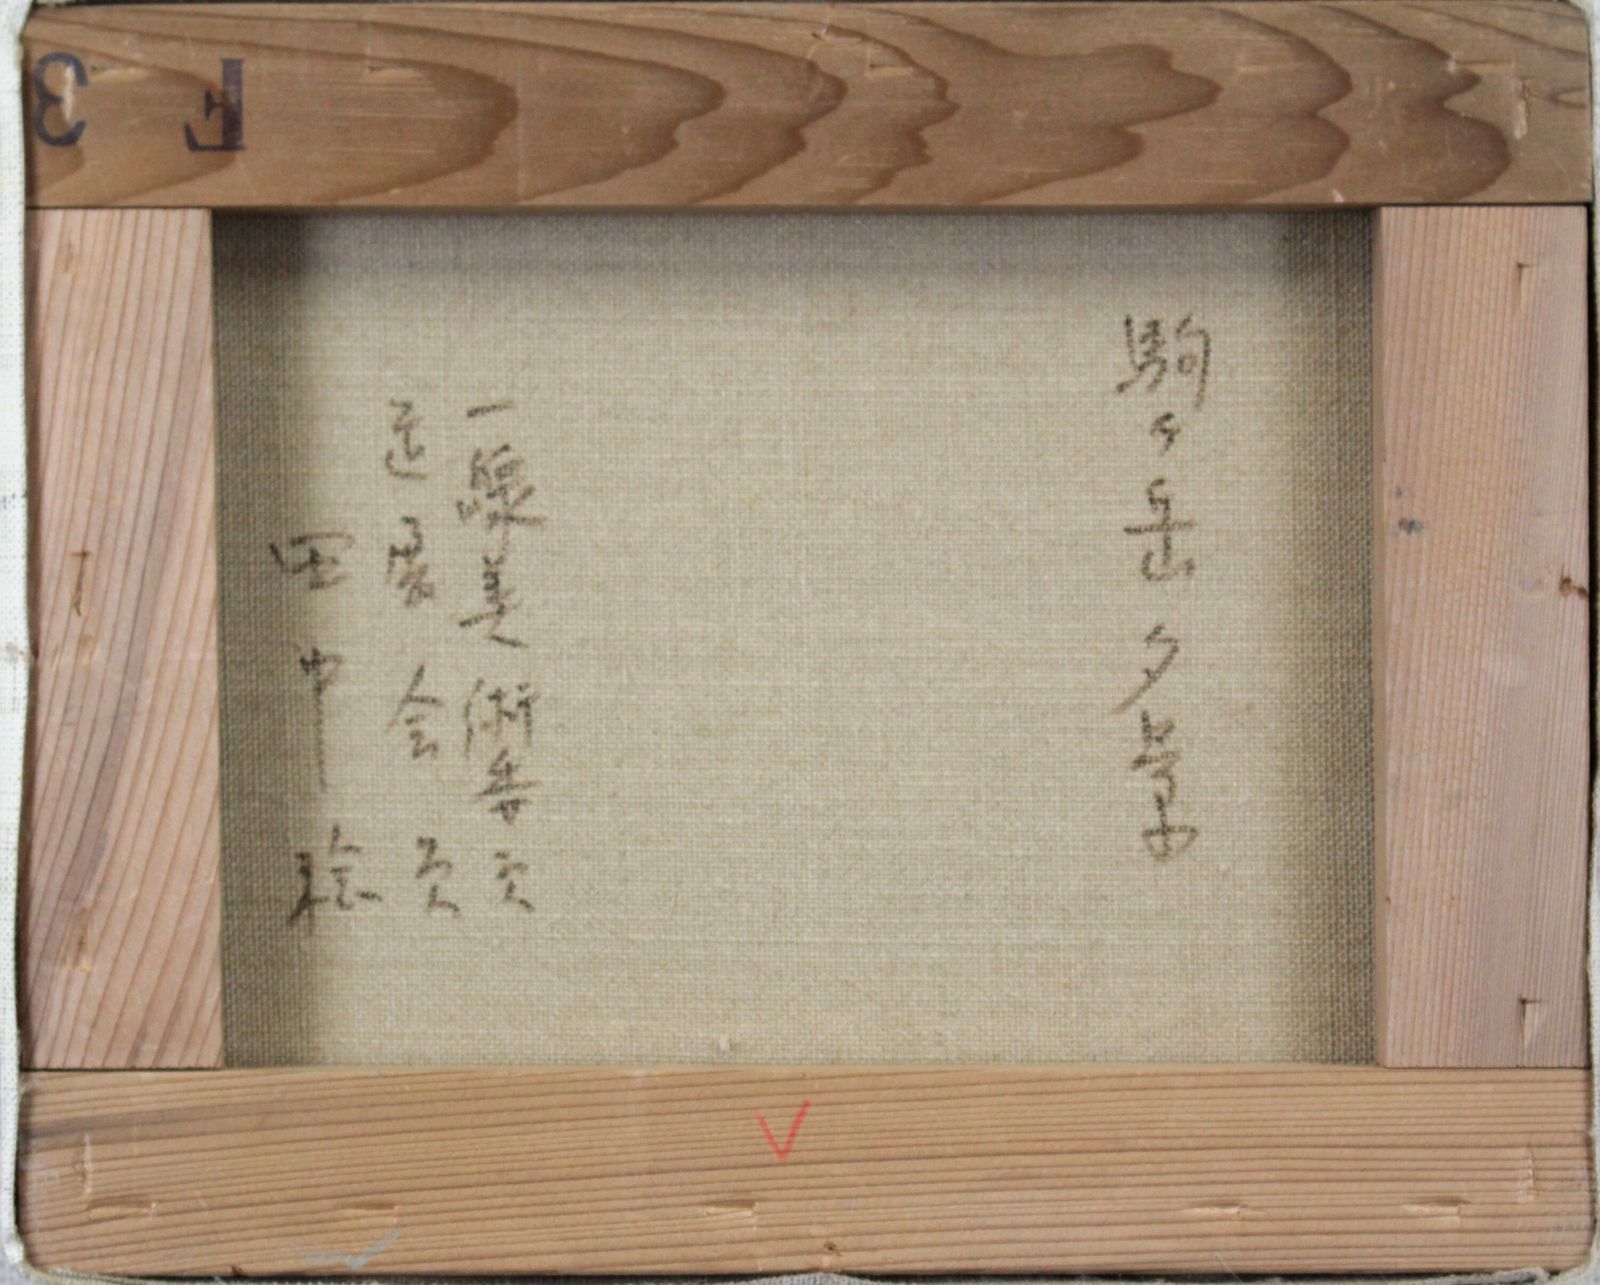 F 3
駒ヶ岳夕景
一線美術委員
道展会員
田中稔